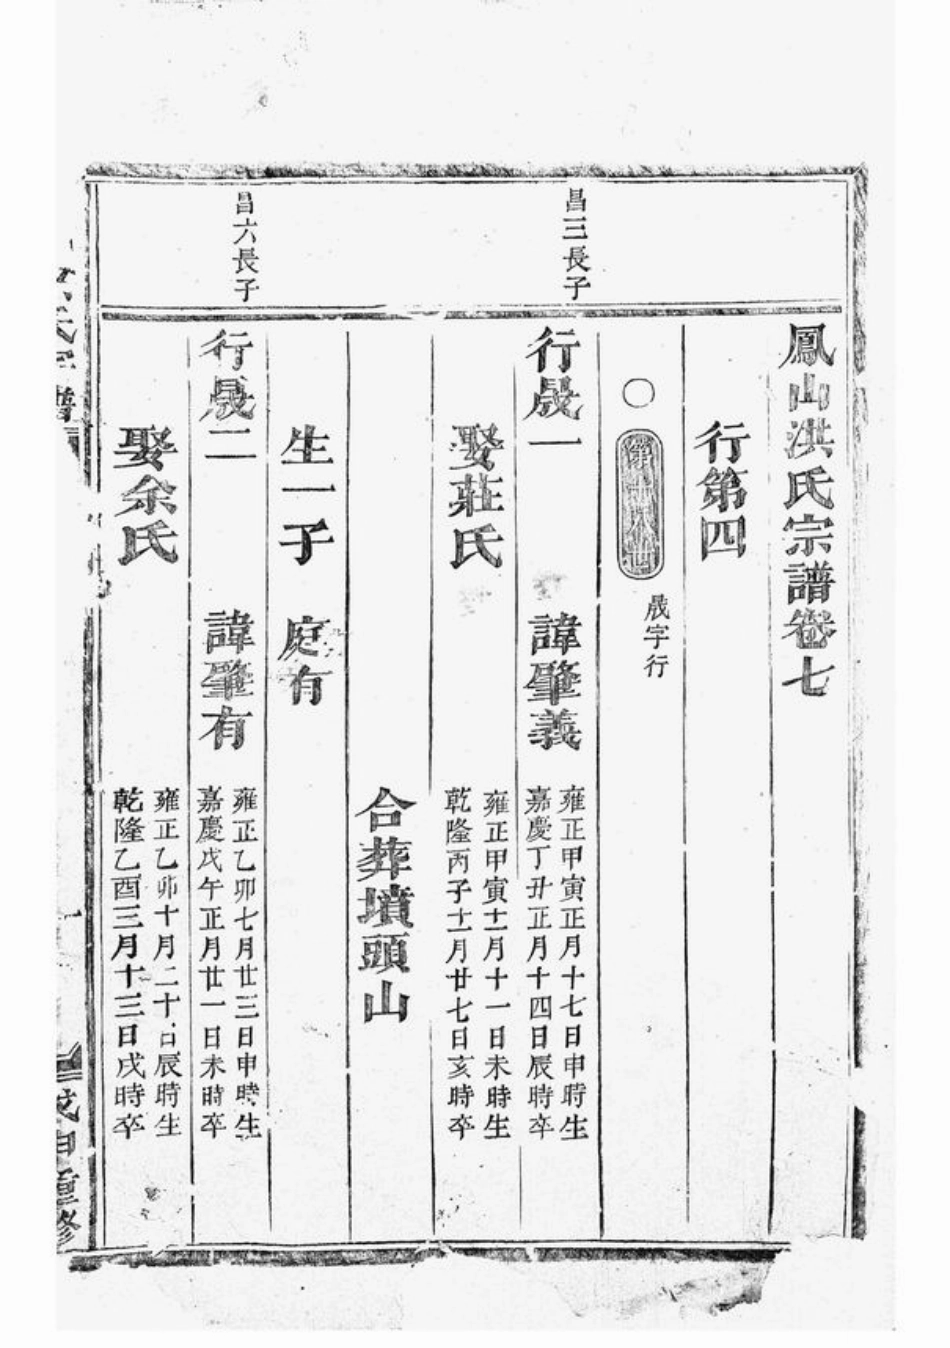 鳳山洪氏宗譜卷七
行第四
〇 第十八世 晟字行
昌三長子
行晟一 諱肇義 雍正甲寅正月十七日申時生
嘉慶丁丑正月十四日辰時卒
娶莊氏 雍正甲寅十二月十一日未時生
乾隆丙子十二月廿七日亥時卒
合葬墳頭山
生一子 庭有
昌六長子
行晟二 諱肇有 雍正乙卯七月廿三日申時生
嘉慶戊午正月廿一日未時卒
娶余氏 雍正乙卯十月二十日辰時生
乾隆乙酉三月十三日戌時卒
氏宗譜
戊申重修